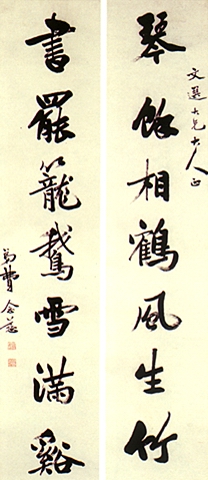 文選大兄大人正
琴餘相鶴風生竹
書罷籠鵝雪滿谿
弟費念慈